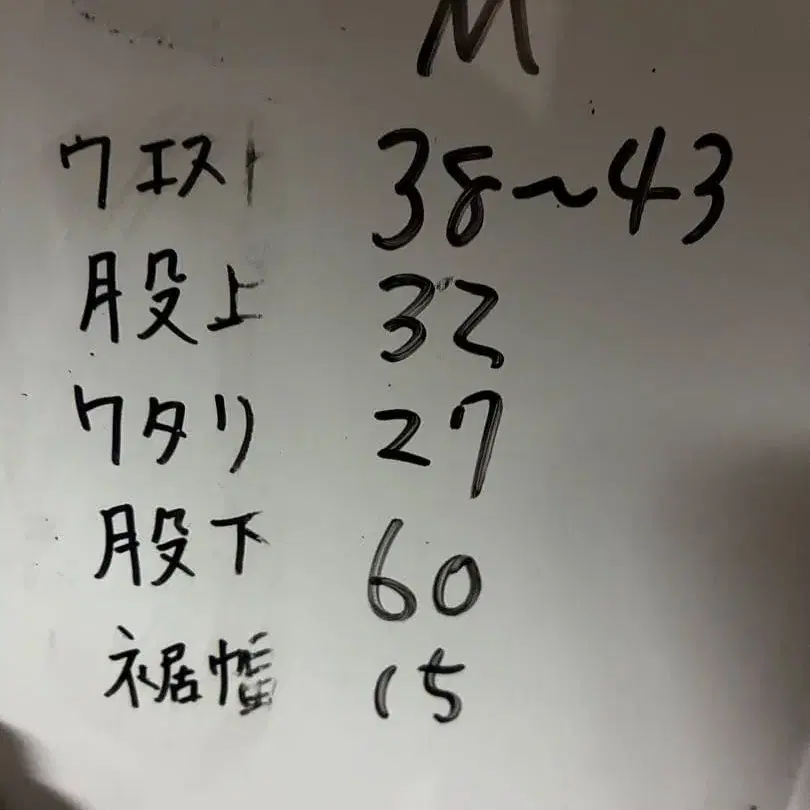 M
ウエスト 38~43
股上 32
ワタリ 27
股下 60
裾幅 15